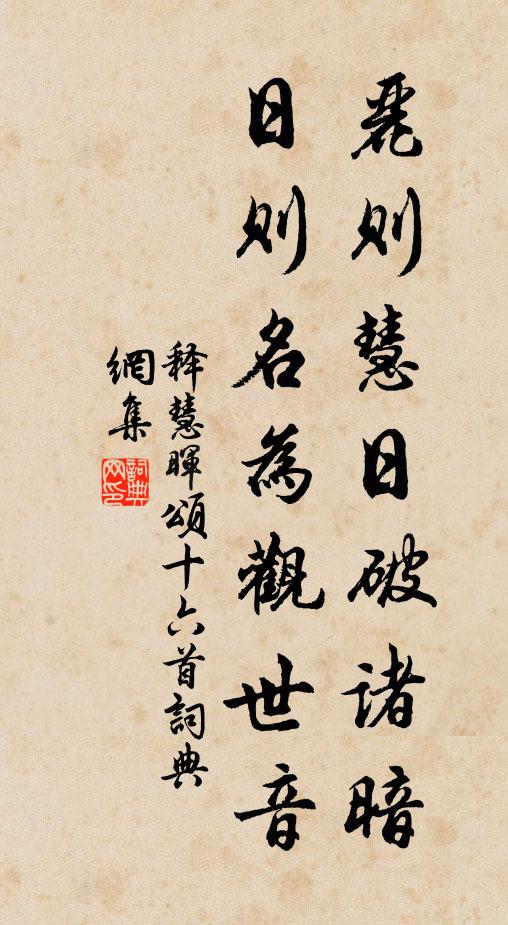 麗則慧日破诸暗
日則名為觀世音
释慧暉頌十六首詞典
網集
詞典
网印